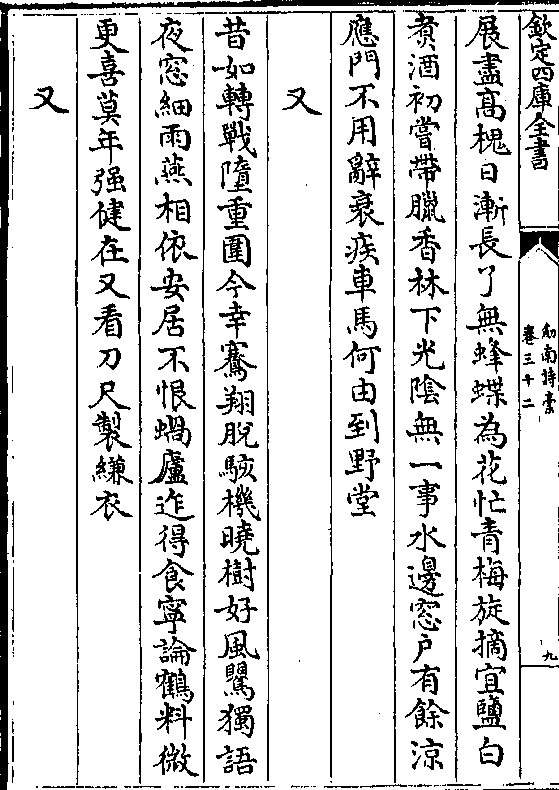 欽定四庫全書
劍南詩稾
卷三十二
九
展盡髙槐日漸長了無蜂蝶為花忙青梅旋摘宜鹽白
煑酒初嘗帶臘香林下光隂無一事水邊窓戸有餘涼
應門不用辭衰疾車馬何由到野堂
又
昔如轉戰墮重圍今幸騫翔脱駭機曉樹好風鸎獨語
夜窓細雨燕相依安居不恨蝸廬迮得食寧論鶴料微
更喜莫年强健在又看刀尺製縑衣
又